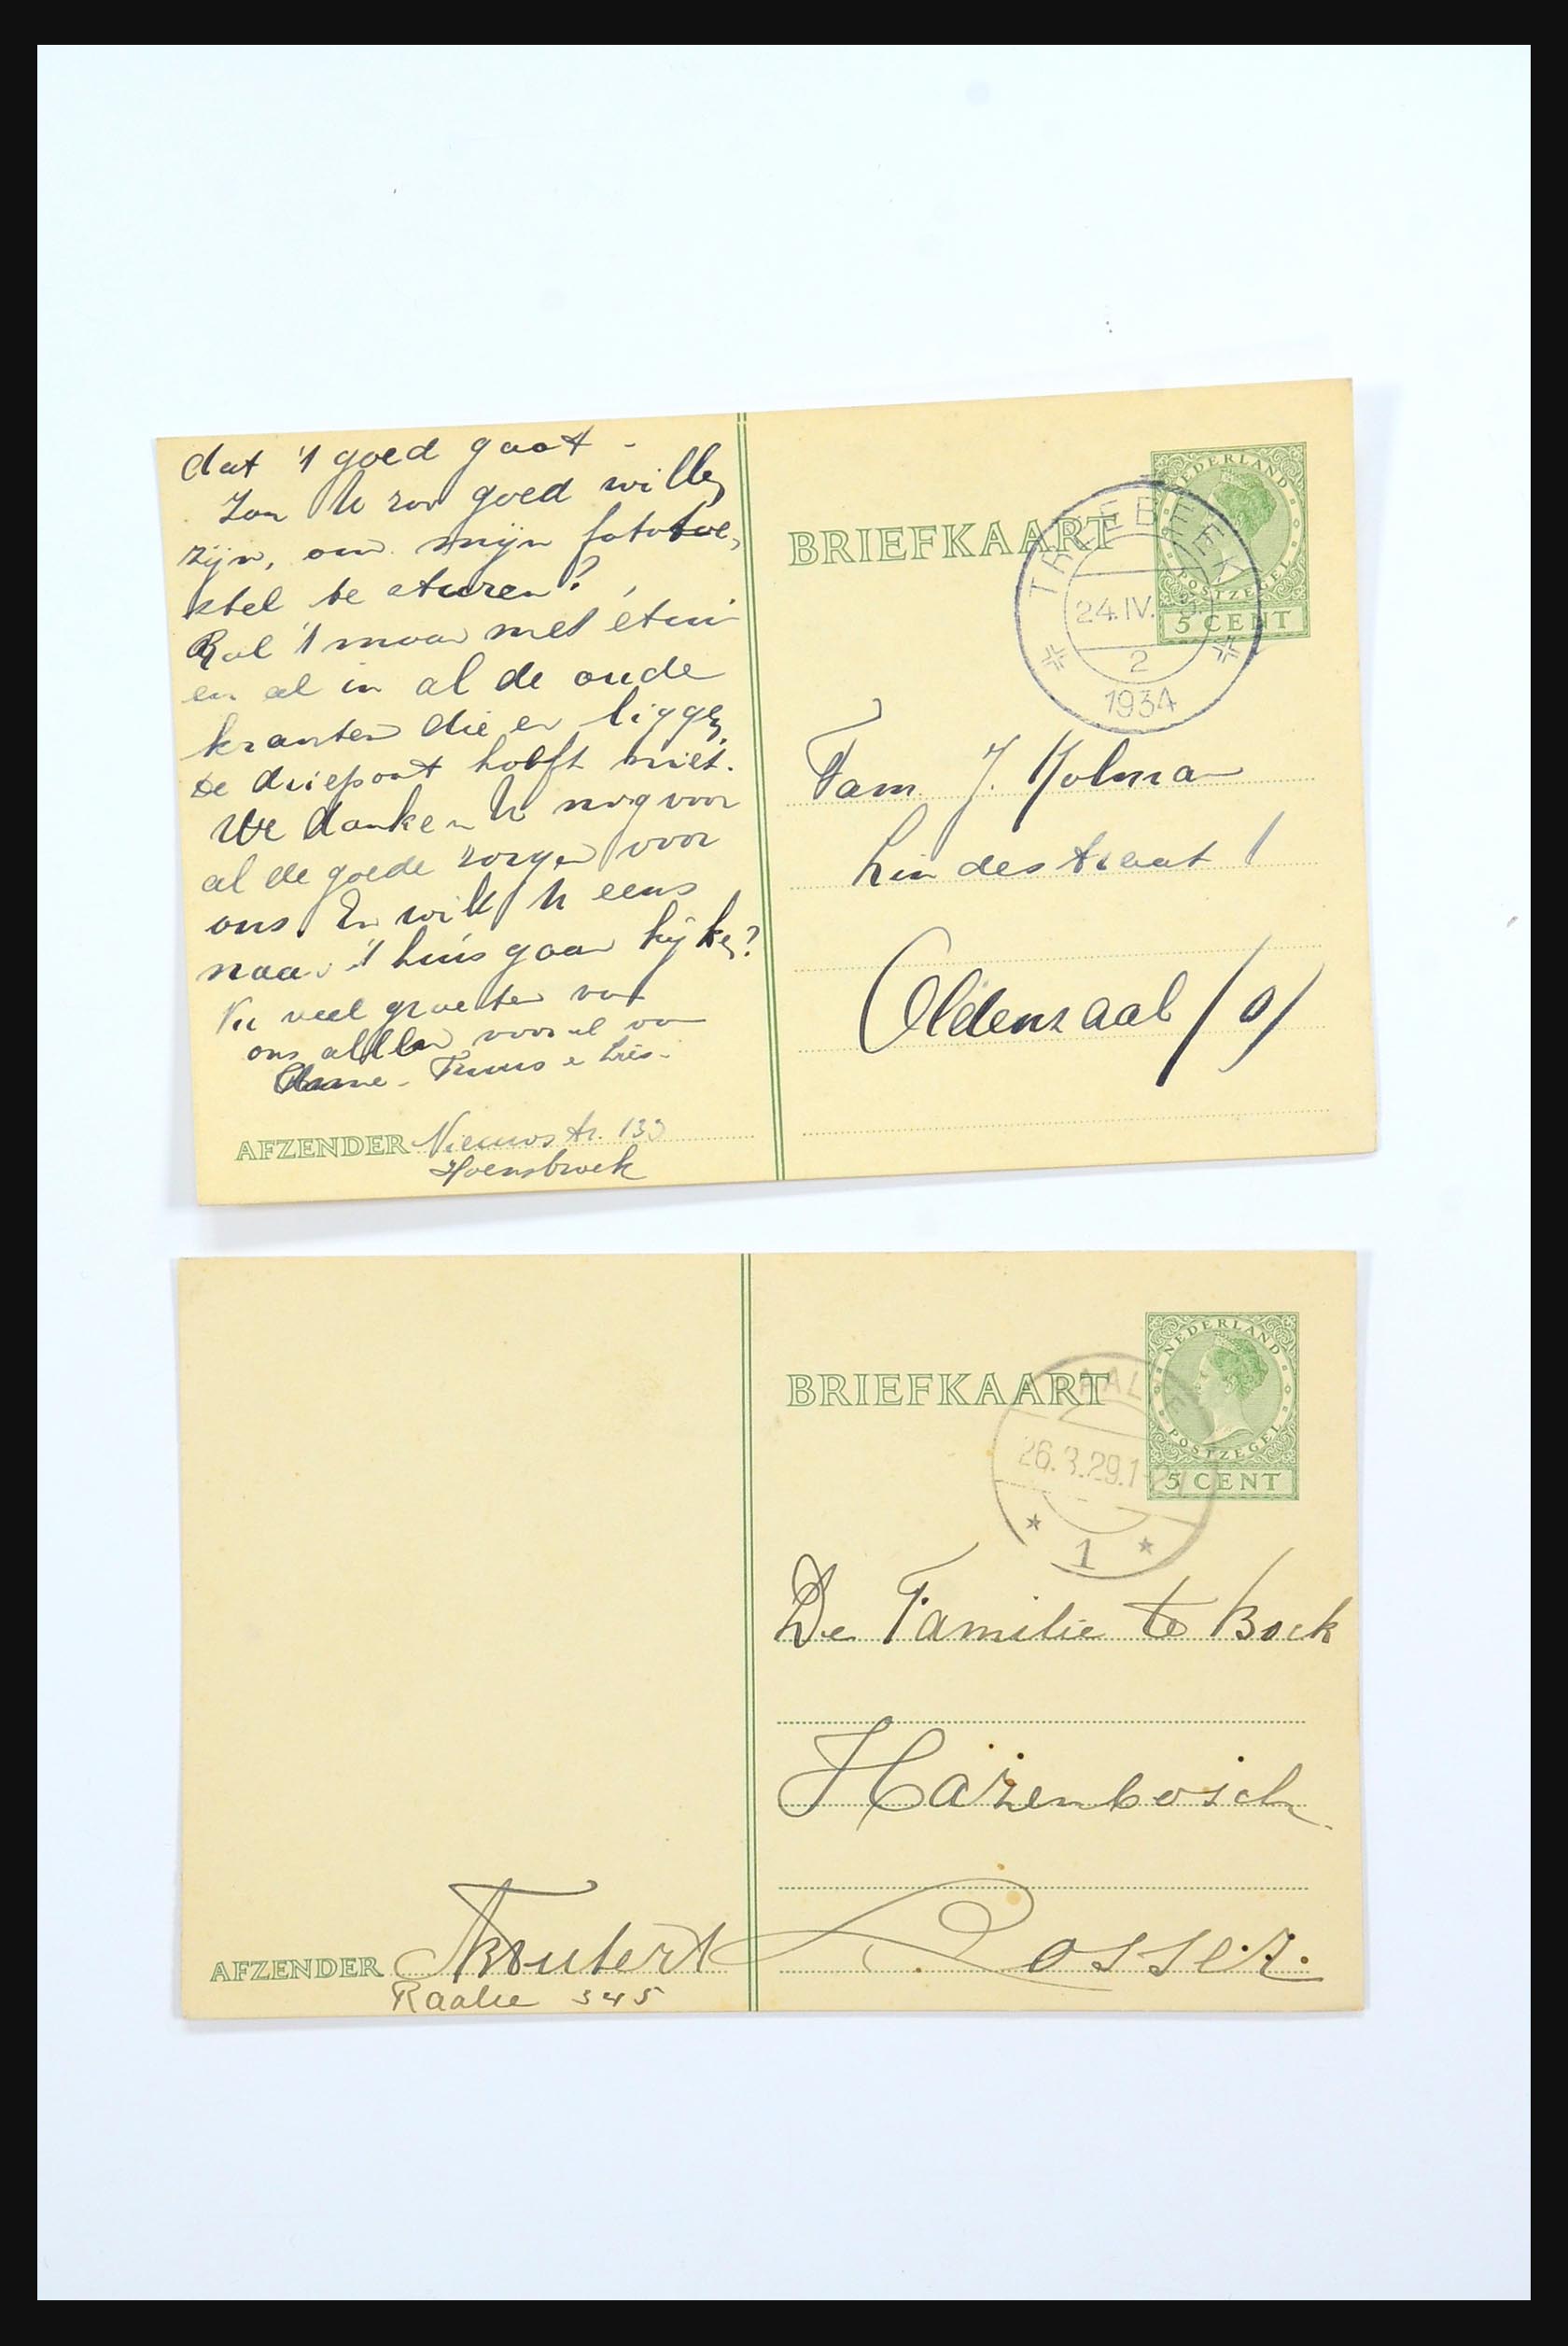 dat 't goed gaat -
Zou U zoo goed willen
zijn, om mijn fototoe-
stel te sturen?
Rol 't maar met étui
en al in al de oude
kranten die er liggen.
De driepoot hoeft niet.
We danken U nog voor
al de goede zorgen voor
ons. En wilt U eens
naar 't huis gaan kijken?
Nu veel groeten van
ons allen vooral van
Truus e Lies.
AFZENDER Nieuwstr. 133
Hoensbroek
BRIEFKAART
NEDERLAND
POSTZEGEL
5 CENT
TREEBEEK
24.IV.
2
1934
Fam J. Holma
Lindestraat 1
Oldenzaal /O/
BRIEFKAART
NEDERLAND
POSTZEGEL
5 CENT
RAALTE
26.3.29.1
1
De Familie te Bock
Hazenbosch
Losser.
AFZENDER
Raalte 345